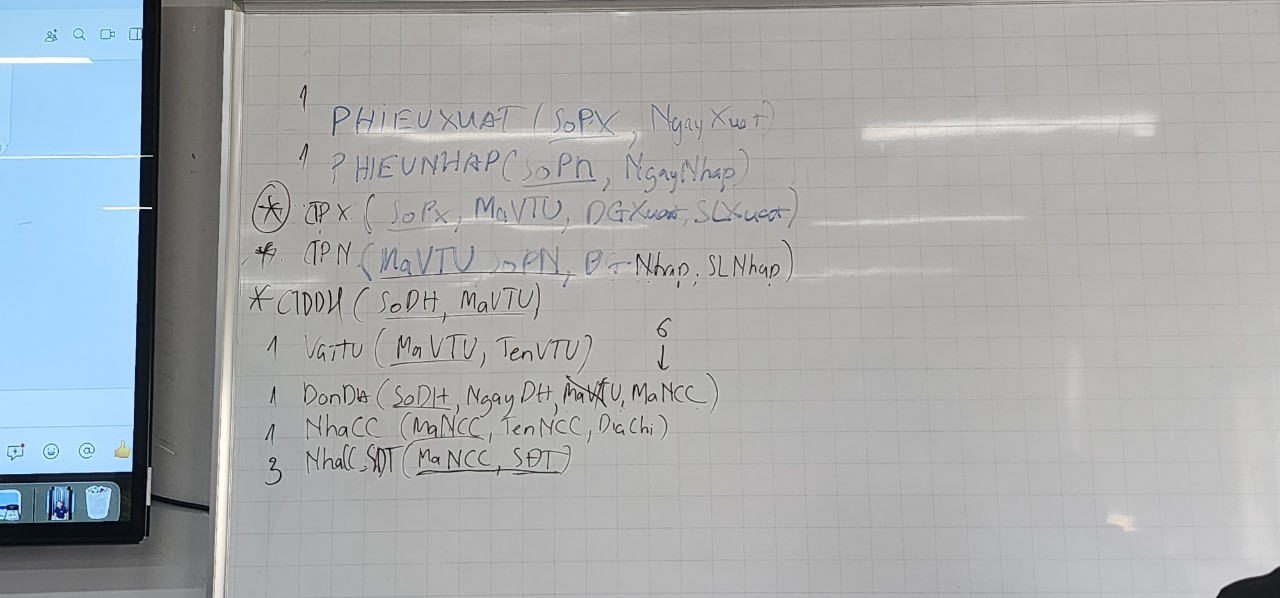 1
PHIEUXUAT (SoPX, NgayXuat)
1 PHIEUNHAP (SoPn, NgayNhap)
* CTPX (SoPx, MaVTU, DGXuat, SLXuat)
* CTPN (MaVTU SoPN, Nhap, SLNhap)
* CTDDH (SoDH, MaVTU)
6
↓
1 Vattu (MaVTU, TenVTU)
1 DonDH (SoDH, NgayDH, MaVTU, MaNCC)
1 NhaCC (MaNCC, TenNCC, DiaChi)
3 NhaCC_SDT (MaNCC, SĐT)